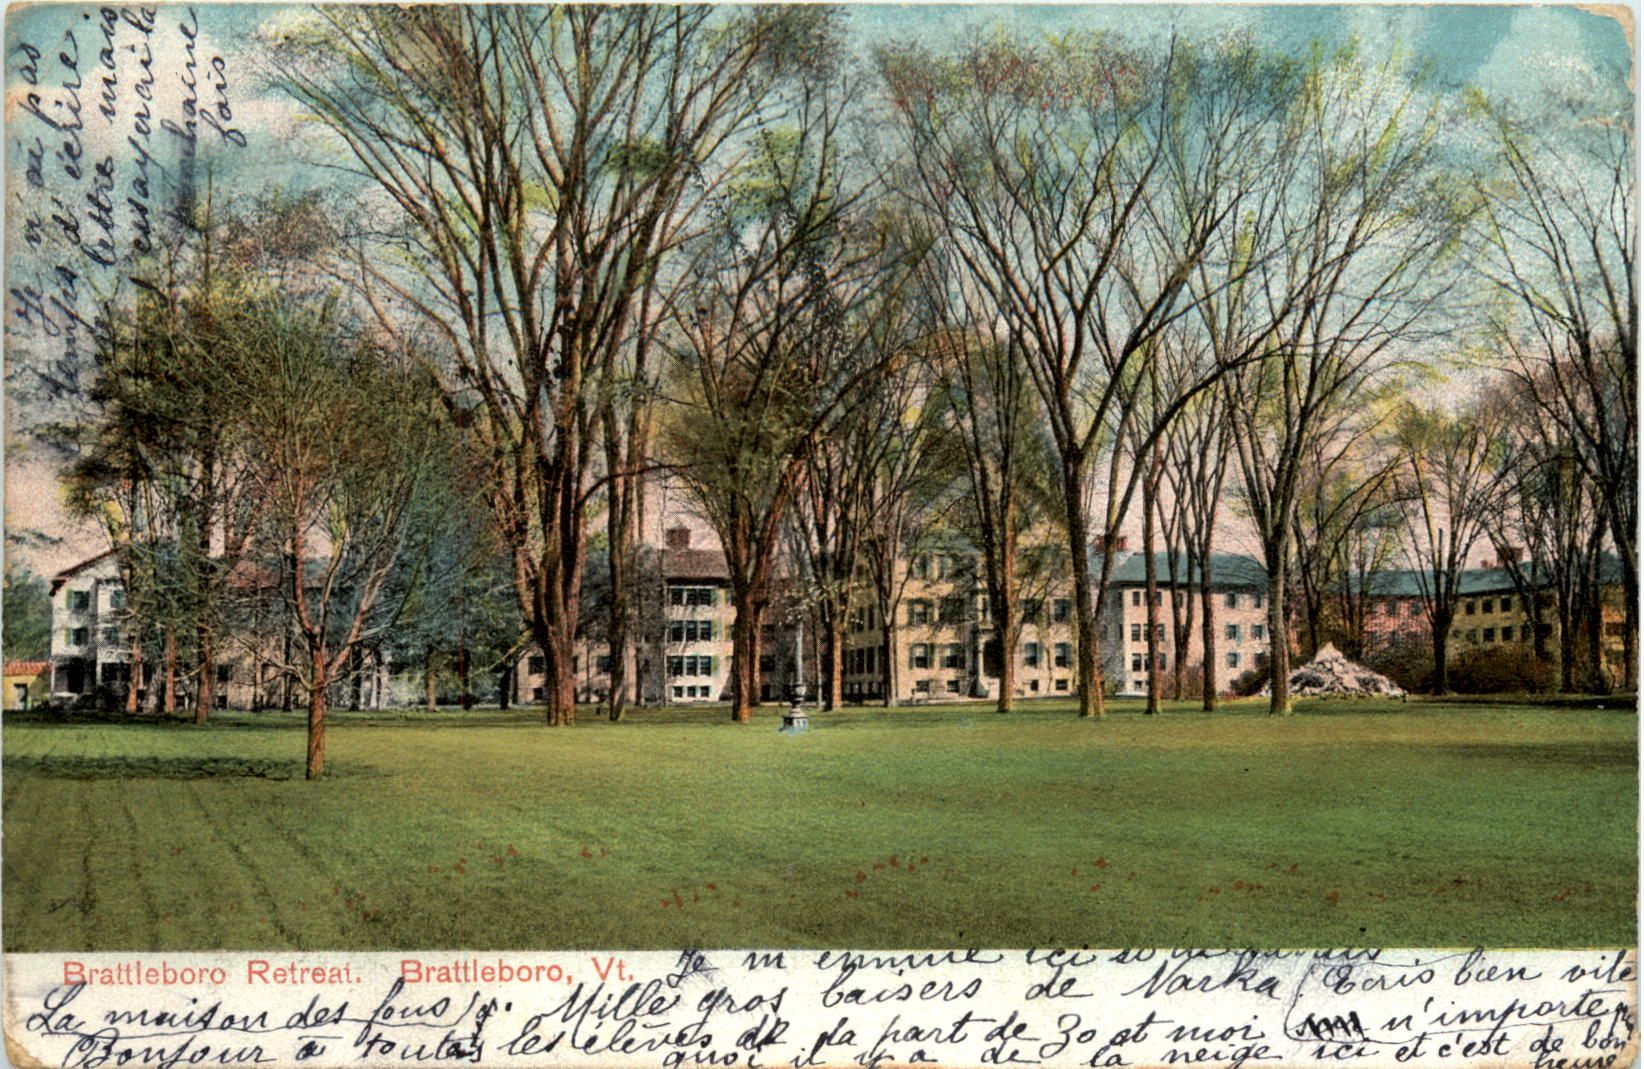 Je n'ai pas
temps d'écrire
une lettre mais
j'essayerai la
prochaine
fois
Brattleboro Retreat. Brattleboro, Vt.
Je m'ennuie ici
La maison des fous
Mille gros baisers de Narka
Ecris bien vite
n'importe
Bonjour à toutes les élèves de la part de Zo et moi
quoi il y a de la neige ici et c'est de bon
heure